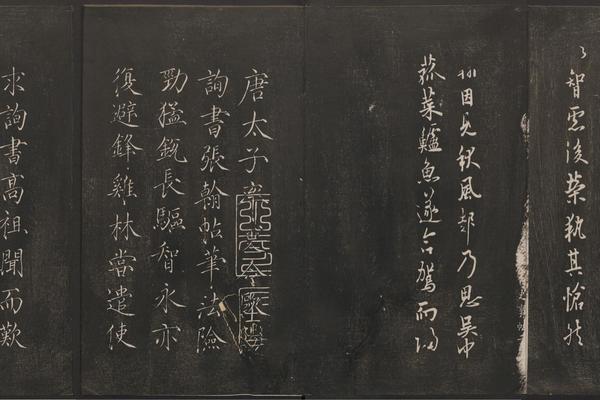 智慮後榮執其愴然
因見秋風起乃思吳中
菰菜鱸魚遂命駕而歸
唐太子率更令歐陽
詢書張翰帖筆法險
勁猛銳長驅智永亦
復避鋒雞林嘗遣使
求詢書高祖聞而歎